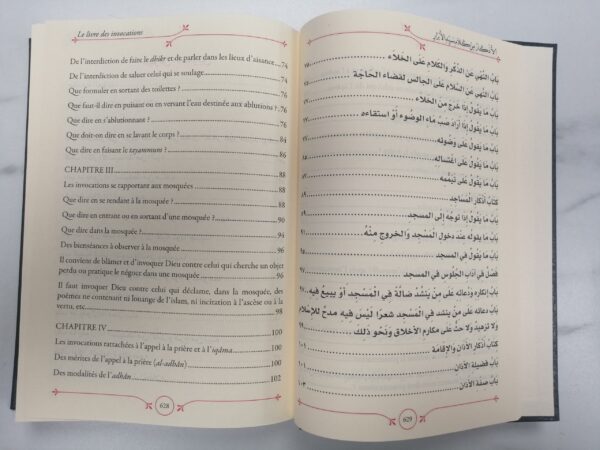 Le livre des invocations
De l'interdiction de faire le dhikr et de parler dans les lieux d'aisance 74
De l'interdiction de saluer celui qui se soulage 74
Que formuler en sortant des toilettes ? 74
Que faut-il dire en puisant ou en versant l'eau destinée aux ablutions ? 76
Que dire en s'ablutionnant ? 76
Que doit-on dire en se lavant le corps ? 84
Que dire en faisant le tayammum ? 86
CHAPITRE III 88
Les invocations se rapportant aux mosquées 88
Que dire en se rendant à la mosquée ? 88
Que dire en entrant ou en sortant d'une mosquée ? 90
Que dire dans la mosquée ? 94
Des bienséances à observer à la mosquée 96
Il convient de blâmer et d'invoquer Dieu contre celui qui cherche un objet
perdu ou pratique le négoce dans une mosquée 96
Il faut invoquer Dieu contre celui qui déclame, dans la mosquée, des
poèmes ne contenant ni louange de l'islam, ni incitation à l'ascèse ou à la
vertu, etc. 98
CHAPITRE IV 100
Les invocations rattachées à l'appel à la prière et à l'iqâma 100
Des mérites de l'appel à la prière (al-adhân) 100
Des modalités de l'adhân 102
628
الأذكار من كلام سيد الأبرار
بابُ النَّهْيِ عَنِ الذِّكْرِ وَالكَلامِ عَلَى الخَلاءِ ٧٥
بابُ النَّهْيِ عَنِ السَّلامِ عَلَى الجالِسِ لِقَضاءِ الحَاجَةِ
بابُ ما يَقولُ إذا خَرَجَ مِنَ الخَلاءِ
بابُ ما يَقولُ إذا أرادَ صَبَّ ماءِ الوضوءِ أو استقاءه ٧٧
بابُ ما يَقولُ على وضوئه ٧٧
بابُ ما يَقولُ على اغتساله ٨٥
بابُ ما يَقولُ على تيمّمه
كتابُ أذكار المساجد
باب ما يقول إذا توجّه إلى المسجد ٨٩
باب ما يقوله عند دخول المسجد والخروج منْهُ ٩١
باب ما يقول في المسجد ٩٥
فصلٌ في آداب الجُلوس في المسجد
بابُ إنكاره ودعائِه على مَنْ يَنْشُدُ ضالَّةً فِي الْمَسْجِد أَوْ يبيعُ فيه ٩٧
بابُ دعائه على من ينشد في المسجد شعرًا ليْسَ فيه مدحٌ للإسلام
ولا تزهيد ولا حثٌّ على مكارم الأخلاق وَنَحْو ذلك ٩٩
كتابُ أذكار الأذان والإقامة ١٠١
بابُ فضيلة الأذان ١٠١
بابُ صفة الأذان ١٠٣
629